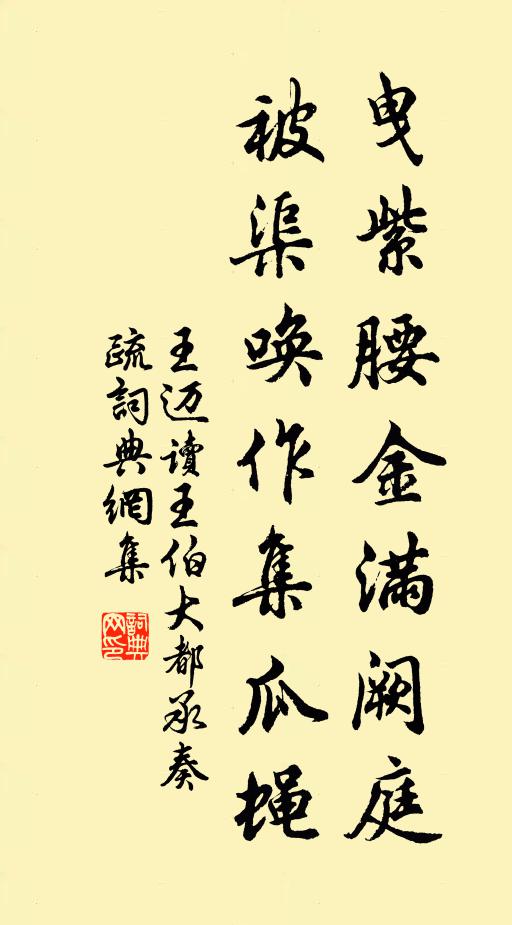 曳紫腰金满阙庭
被渠唤作集瓜蝇
王迈读王伯大都承奏
疏词典網集
詞典
网印